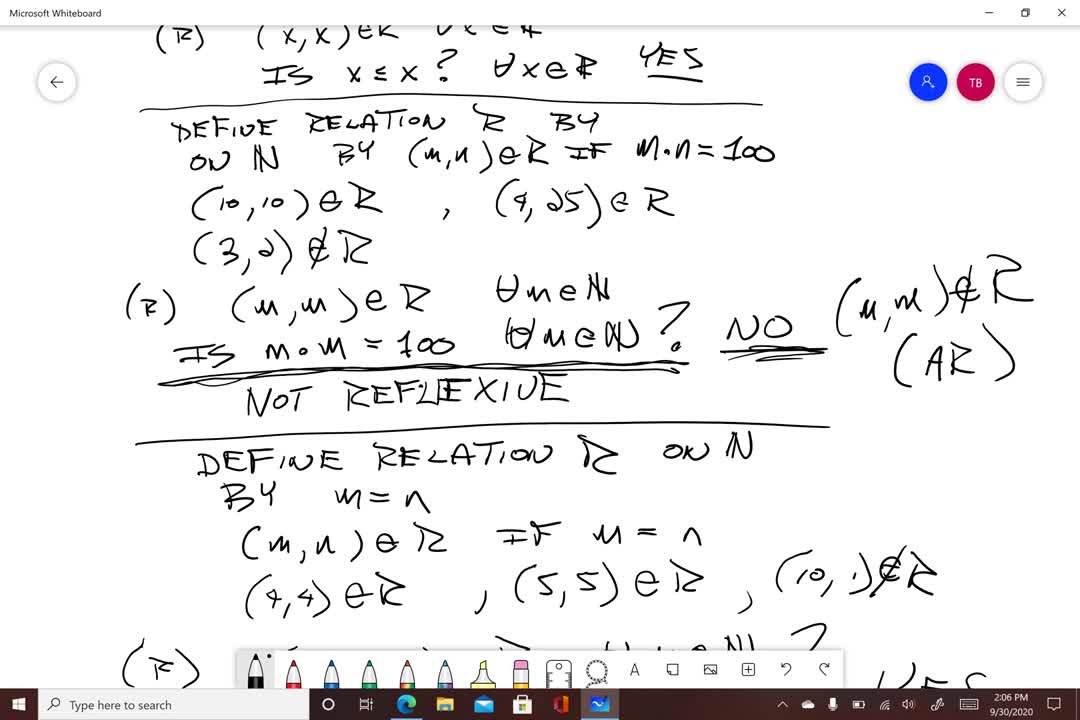 Microsoft Whiteboard
(R) (x, x) ∈ R ∀x ∈ R
IS x ≤ x ? ∀x ∈ R YES
TB
DEFINE RELATION R BY
ON N BY (m, n) ∈ R IF m • n = 100
(10, 10) ∈ R , (4, 25) ∈ R
(3, 2) ∉ R
(R) (m, m) ∈ R ∀m ∈ N
IS m • m = 100 (∀m ∈ N) ? NO
(m, m) ∉ R
(AR)
NOT REFLEXIVE
DEFINE RELATION R ON N
BY m = n
(m, n) ∈ R IF m = n
(4, 4) ∈ R , (5, 5) ∈ R , (10, 1) ∉ R
(R) ?
YES
A
Type here to search
2:06 PM
9/30/2020